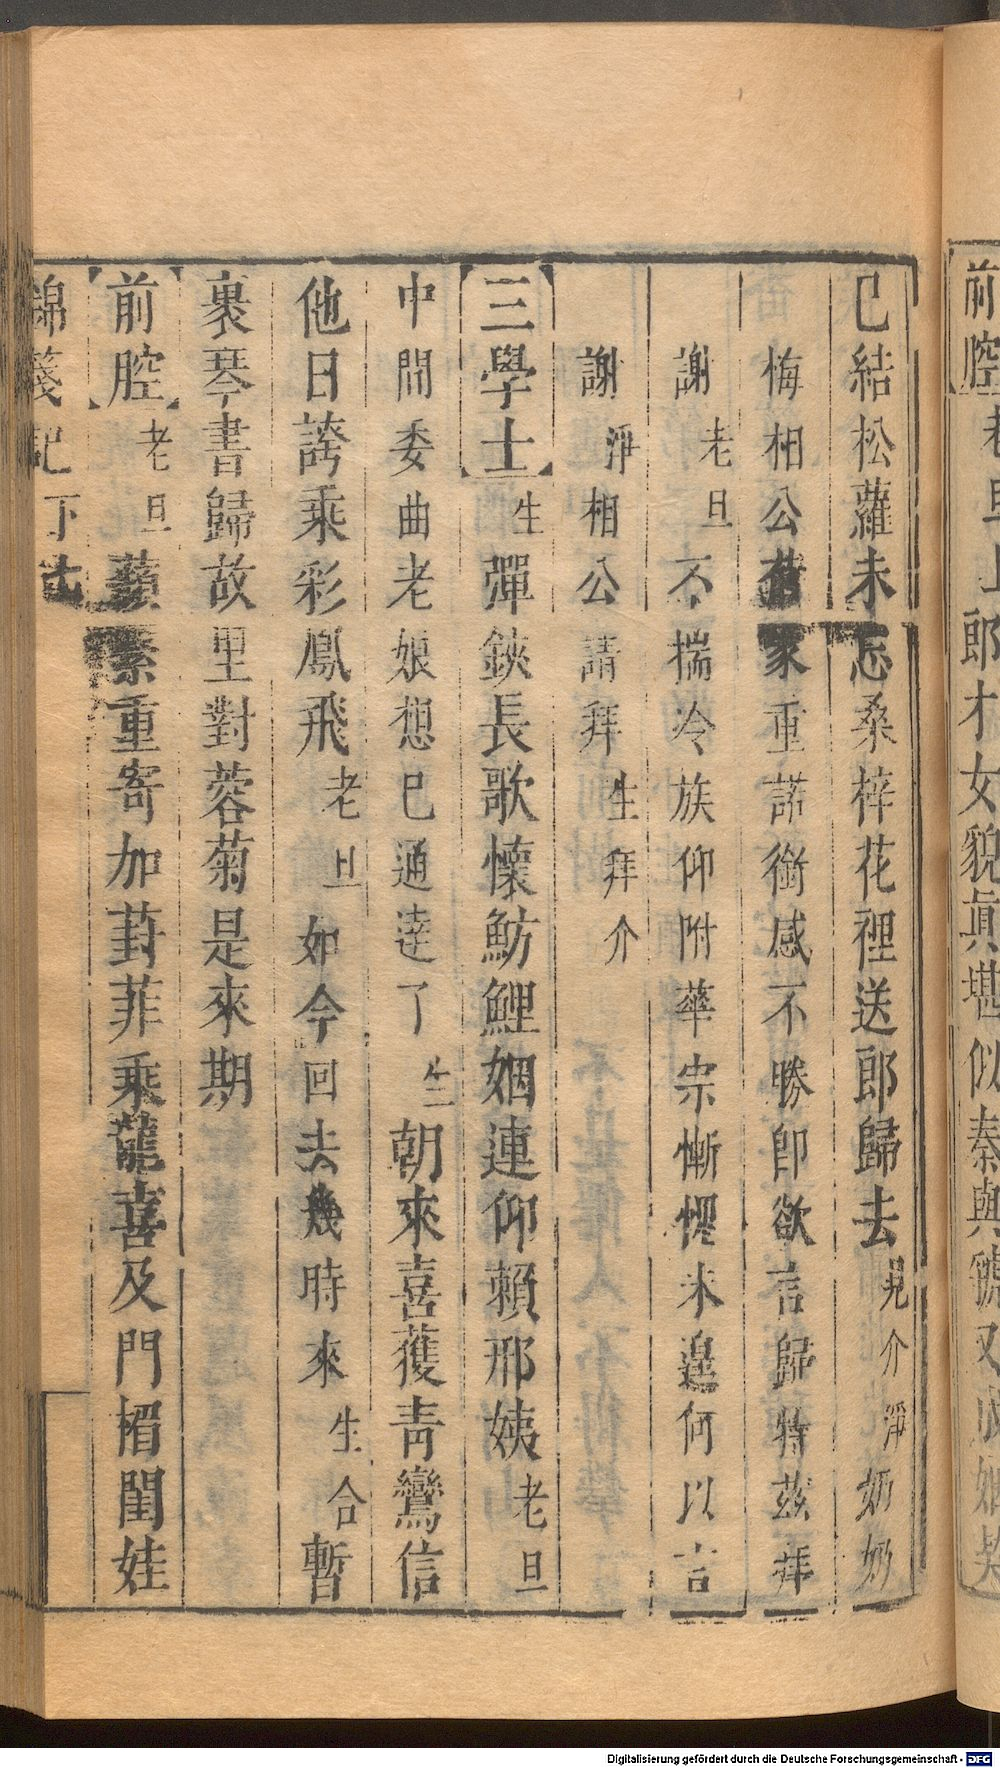 前腔 老旦上 郎才女貌真堪似秦與虢又成姻
已結松蘿未忘桑梓花裡送郎歸去 見介 淨 奶奶
梅相公 家重諾銜感不勝即欲言歸特茲拜
謝 老旦 不揣冷族仰附華宗慚愧未遑何以言
謝 淨 相公請拜 生拜介
三學士 生 彈鋏長歌懷魴鯉姻連仰賴邢姨 老旦
中間委曲老娘想已通達了 生 朝來喜獲青鸞信
他日誇乘彩鳳飛 老旦 如今回去幾時來 生合 暫
裹琴書歸故里對蓉菊是來期
前腔 老旦 蘋蘩重寄加葑菲乘龍喜及門楣閨娃
錦箋記 下
Digitalisierung gefördert durch die Deutsche Forschungsgemeinschaft - DFG